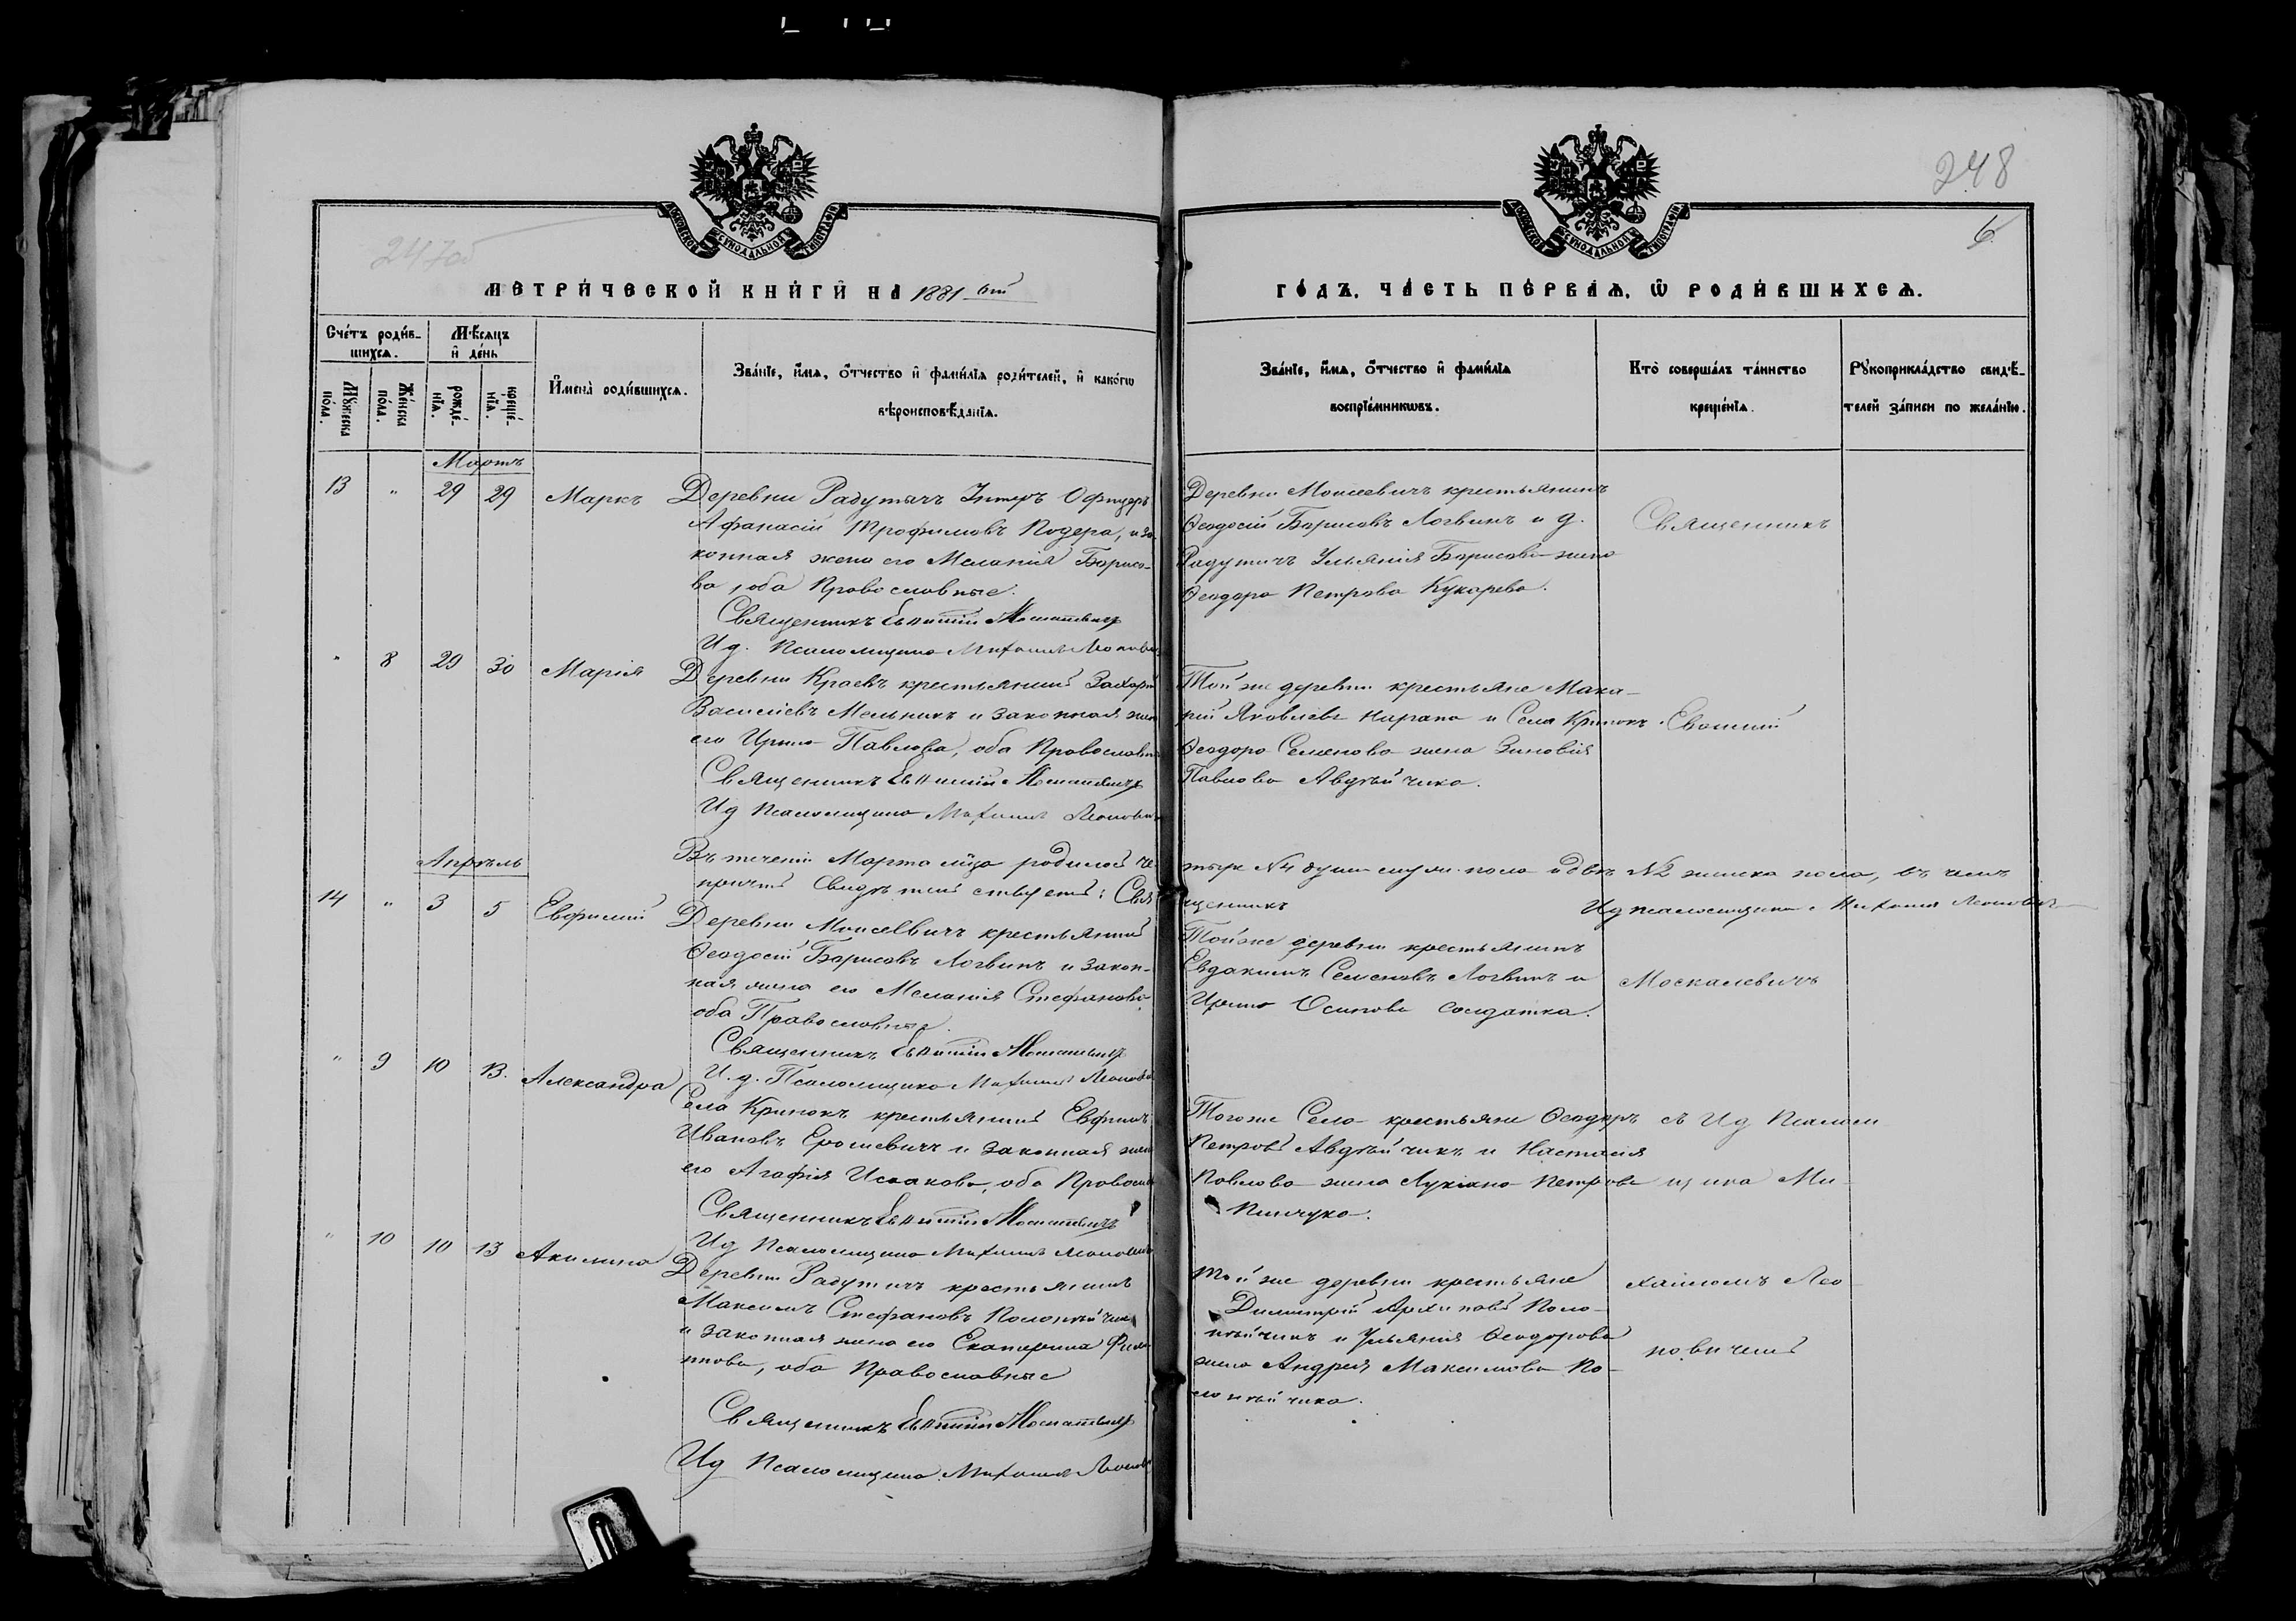 248
6
247об
МОСКОВСКОЙ СѴНОДАЛЬНОЙ ТИПОГРАФІИ
МОСКОВСКОЙ СѴНОДАЛЬНОЙ ТИПОГРАФІИ
МЕТРИ́ЧЕСКОЙ КНИ́ГИ НА 1881 ый
ГО́ДЪ, ЧА́СТЬ ПЕ́РВАѦ, Ѡ РОДИ́ВШИХСѦ.
Сче́тъ роди́в-
шихсѧ.
Мꙋ́жеска по́ла.
Же́нска по́ла.
Мѣ́сѧцъ
и҆ де́нь
рожде́-
нїѧ.
креще́-
нїѧ.
И҆мена̀ роди́вшихсѧ.
Зва́нїе, и҆́мѧ, ѻ҆́тчество и҆ фамі́лїѧ роди́телей, и҆ како́гѡ
вѣроисповѣ́данїѧ.
Зва́нїе, и҆́мѧ, ѻ҆́тчество и҆ фамі́лїѧ
воспрїе́мникѡвъ.
Кто̀ соверша́лъ та́инство
креще́нїѧ.
Рꙋкоприкла́дство свидѣ́-
телей за́писи по жела́нїю.
Мартъ
13 " 29 29 Маркъ
Деревни Радутичъ Унтеръ Офицеръ
Афанасій Трофимовъ Кодера, и за
конная жена его Меланія Борисо-
ва, оба Православные.
Священникъ Евѳимій Москалевичъ
И д. Псаломщика Михаилъ Леонови
Деревни Моисеевичъ крестьянинъ
Ѳеодосій Борисовъ Логвинъ и д.
Радутичъ Ульянія Борисова жена
Ѳеодора Петрова Кухарева.
Священникъ
" 8 29 30 Марія
Деревни Краевъ крестьянинъ Захарій
Василіевъ Мельникъ и законная жен
его Ирина Павлова, оба Православн
Священникъ Евѳимій Москалевичъ
И д Псаломщика Михаилъ Леонович
Той же деревни крестьяне Мака-
рій Яковлевъ Карапа и Села Кринокъ
Ѳеодора Семенова жена Зиновія
Павлова Авдѣйчика.
Евѳимій
Въ теченіи Марта м-ца родилось че
тыре №4 души муж. пола и двѣ №2 женска пола, въ чемъ
причтъ свидѣтельствуетъ: Свя
щенникъ
И д псаломщика Михаилъ Леонович
Апрѣль
14 " 3 5 Евфимій
Деревни Моисеевичъ крестьянинъ
Ѳеодосій Борисовъ Логвинъ и закон-
ная жена его Меланія Стефанова,
оба Православные.
Священникъ Евѳимій Москалевичъ
И. д. Псаломщика Михаилъ Леонови
Той же деревни крестьянинъ
Евдакимъ Семеновъ Логвинъ и
Ирина Осипова солдатка.
Москалевичъ
" 9 10 13. Александра
Села Кринокъ крестьянинъ Евфимъ
Ивановъ Ерошевичъ и законная жен
его Агафія Исакова, оба Правосла
Священникъ Евѳимій Москалевичъ
И д Псаломщика Михаилъ Леонович
Того же Села крестьяне Ѳеодоръ
Петровъ Авдѣйчикъ и Настасія
Павлова жена Лукіана Петрова
Пинчука.
съ И д Псалом
щика Ми-
" 10 10 13 Акилина
Деревни Радутичъ крестьянинъ
Максимъ Стефановъ Полотнѣйчик
и законная жена его Екатерина Фили
ппова, оба Православные
Священникъ Евѳимій Москалевичъ
И д Псаломщика Михаилъ Леонов
Той же деревни крестьяне
Димитрій Архиповъ Поло-
тнѣйчикъ и Ульянія Ѳеодорова
жена Андрея Максимова По-
лотнѣйчика.
хаиломъ Лео-
новичемъ